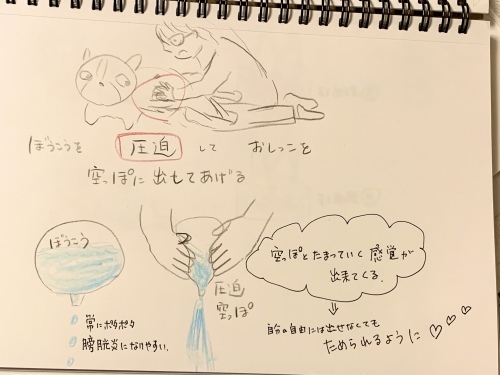 ぼうこうを 圧迫 して おしっこを
空っぽに 出してあげる
ぼうこう
常にポタポタ
膀胱炎になりやすい.
圧迫
空っぽ
空っぽとたまっていく感覚が
出来てくる.
自分の自由には出せなくても
ためられるように♡♡♡